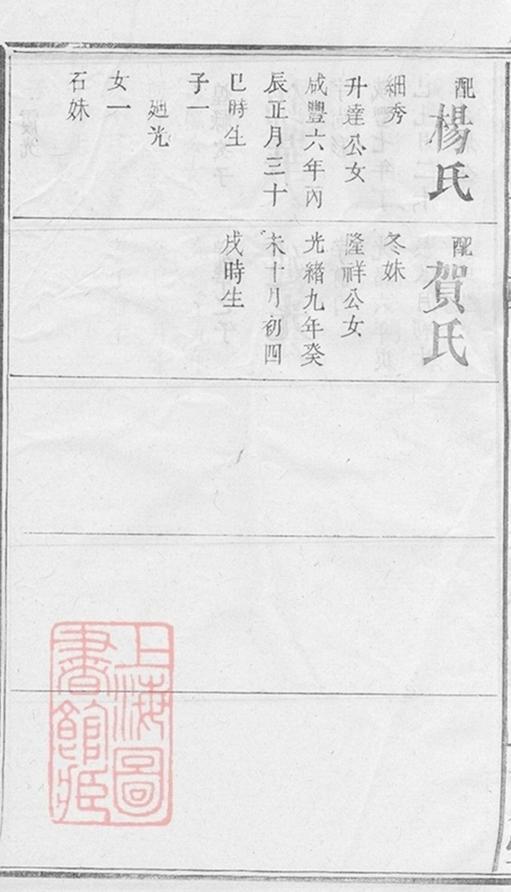 配楊氏
細秀
升達公女
咸豐六年丙
辰正月三十
巳時生
子一
廻光
女一
石妹
配賀氏
冬妹
隆祥公女
光緒九年癸
未十月初四
戌時生
上海圖
書館藏